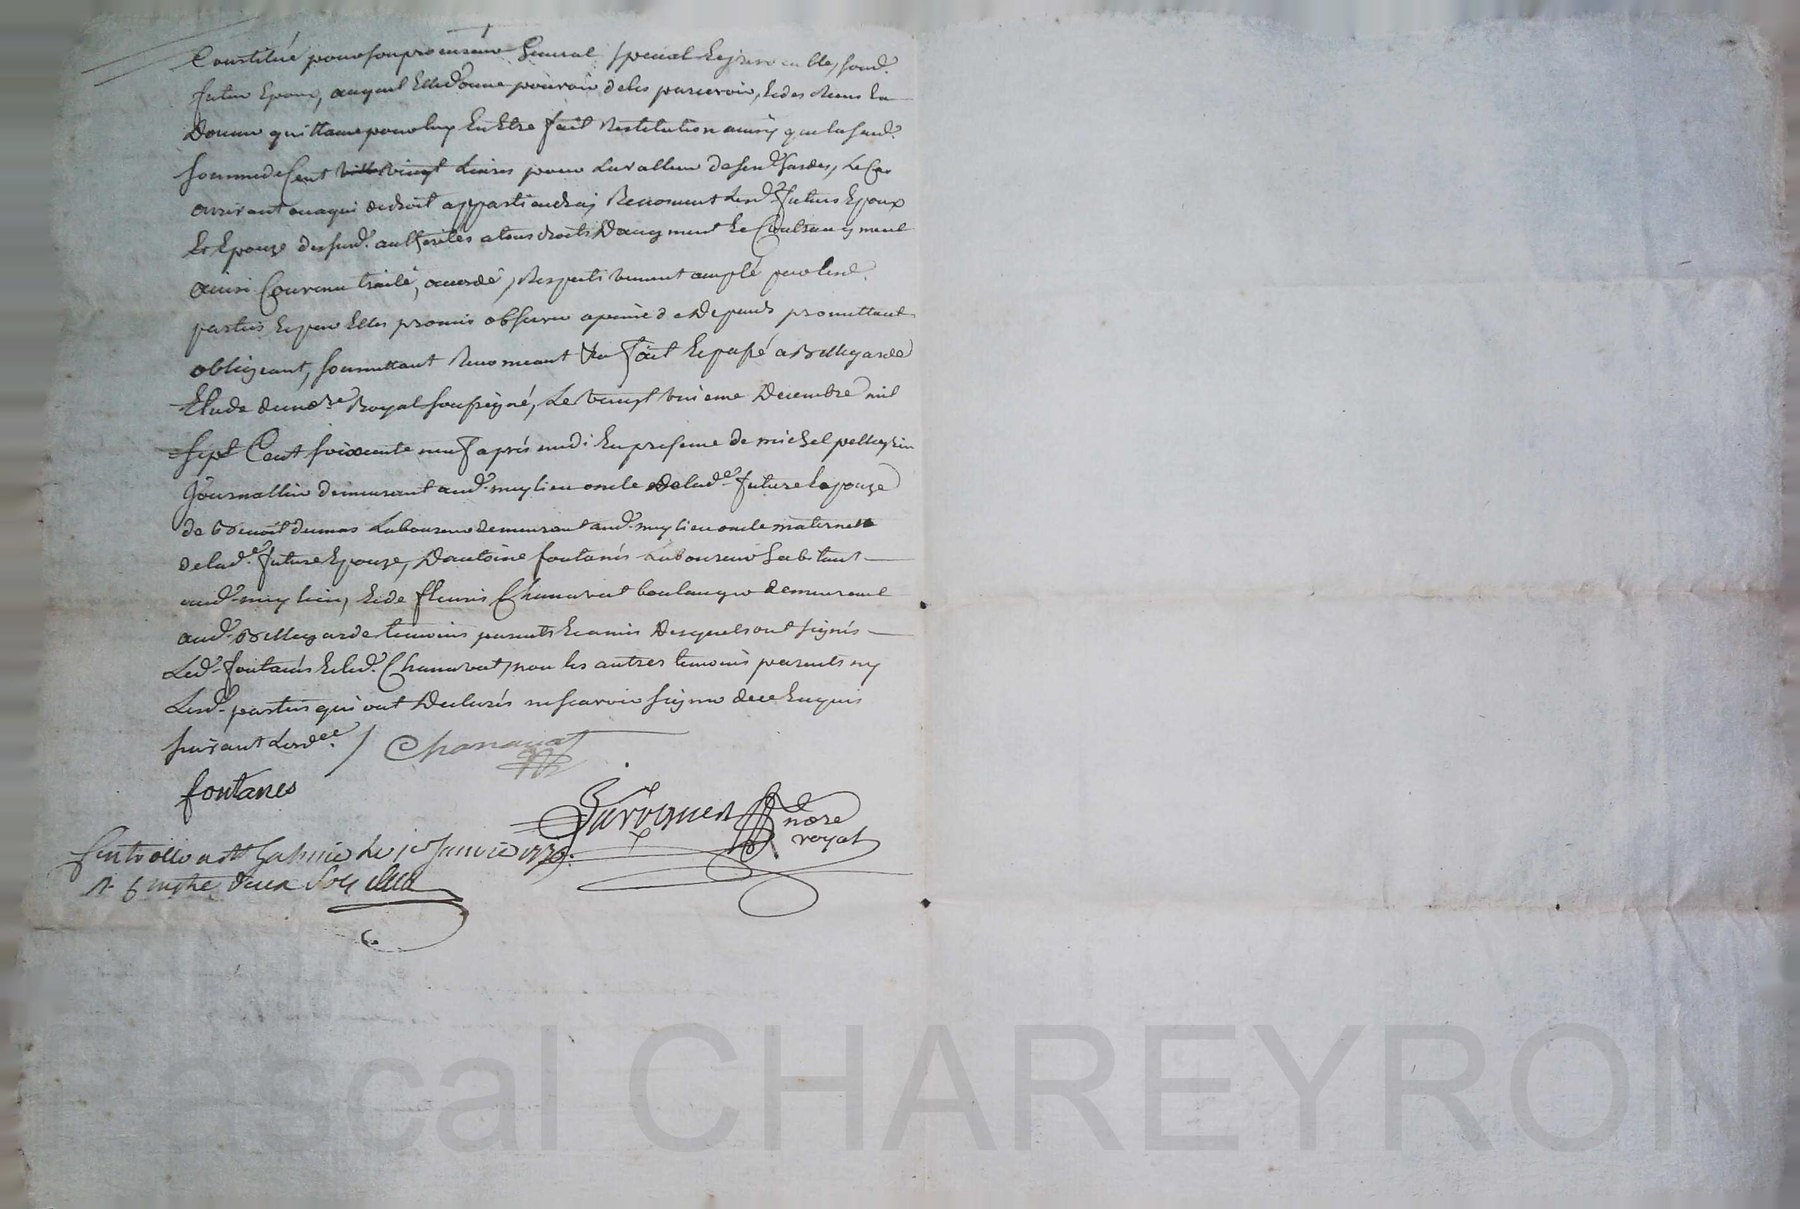 Constitué pour son procureur General special & irrevocable, sond.
futur Epoux, auquel Elle donne pouvoir de les percevoir, & des Reçus En
Donner quittance pour luy En Etre fait Restitution ainsy que la sud.
somme de Cent vingt Livres pour La valleur de sesd. hardes, Le Cas
arrivant ou a qui de droit appartiendra; Renoncent Lesd. futurs Epoux
Et Epouze des sud. authorités a tous droits D'augment Et
ainsi Convenu traité, accordé, Respectivement accepté par lesd.
parties & par Elles promis observer a peine de Depends promettant
obligeant, soumettant Renonceant &a fait & passé a Bellegarde
Etude du nore. Royal soussigné, Le vingt Decembre mil
sept Cent soixante neuf après midi En presence de michel pellegrin
Journallier demeurant aud. meylieu oncle de lade. future Epouze
de Benoît dumas Laboureur demeurant aud. meylieu oncle maternel
de lade. future Epouze, D'antoine fontanés Laboureur habitant
aud. meylieu, & de fleuris Chanavat boulanger demeurant
aud. Bellegarde temoins parents & amis Desquels ont signés
Led. fontanés & led. Chanavat, non les autres temoins parents ny
Lesd. parties qui ont Declarés ne scavoir signer de ce Enquis
suivant Lordce. / Chanavat
fontanes
nore
royal
Controllé a St Galmier Le 1er Janvier 1770.
R. deux sols